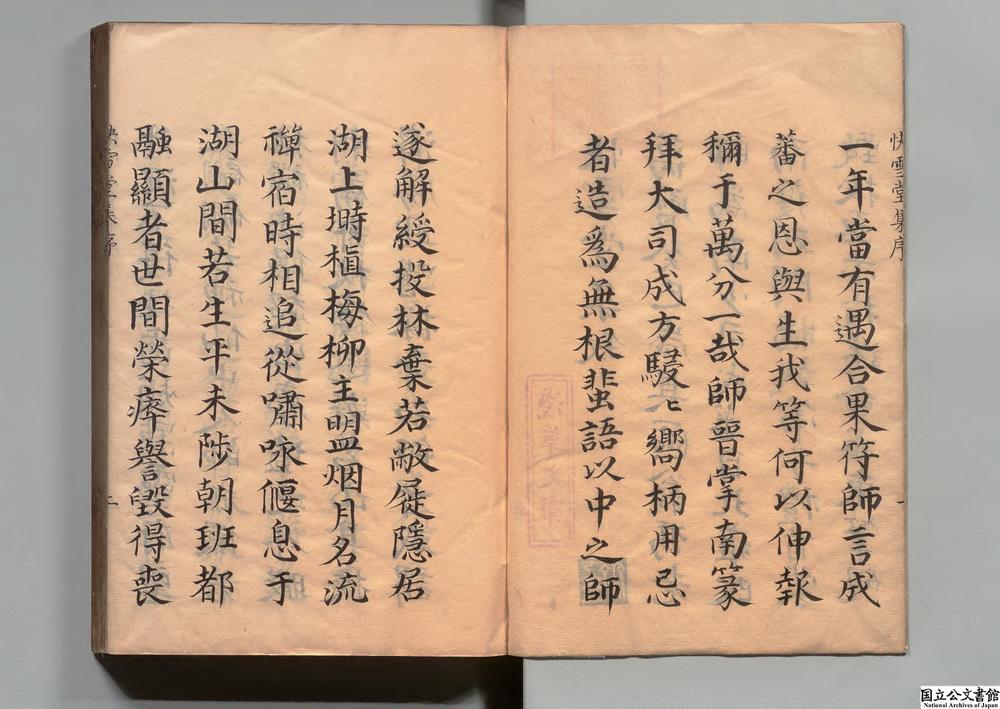 快雪堂集序
一年當有遇合果符師言成
蕃之恩與生我等何以伸報
稱于萬分一哉師晉掌南篆
拜大司成方駸〻嚮柄用忌
者造爲無根蜚語以中之師
一
遂解綬投林棄若敝屣隱居
湖上塒植梅柳主盟烟月名流
禪宿時相追從嘯咏偃息于
湖山間若生平未陟朝班都
融顯者世間榮瘁譽毀得喪
快雪堂集序
二
国立公文書館
National Archives of Japan